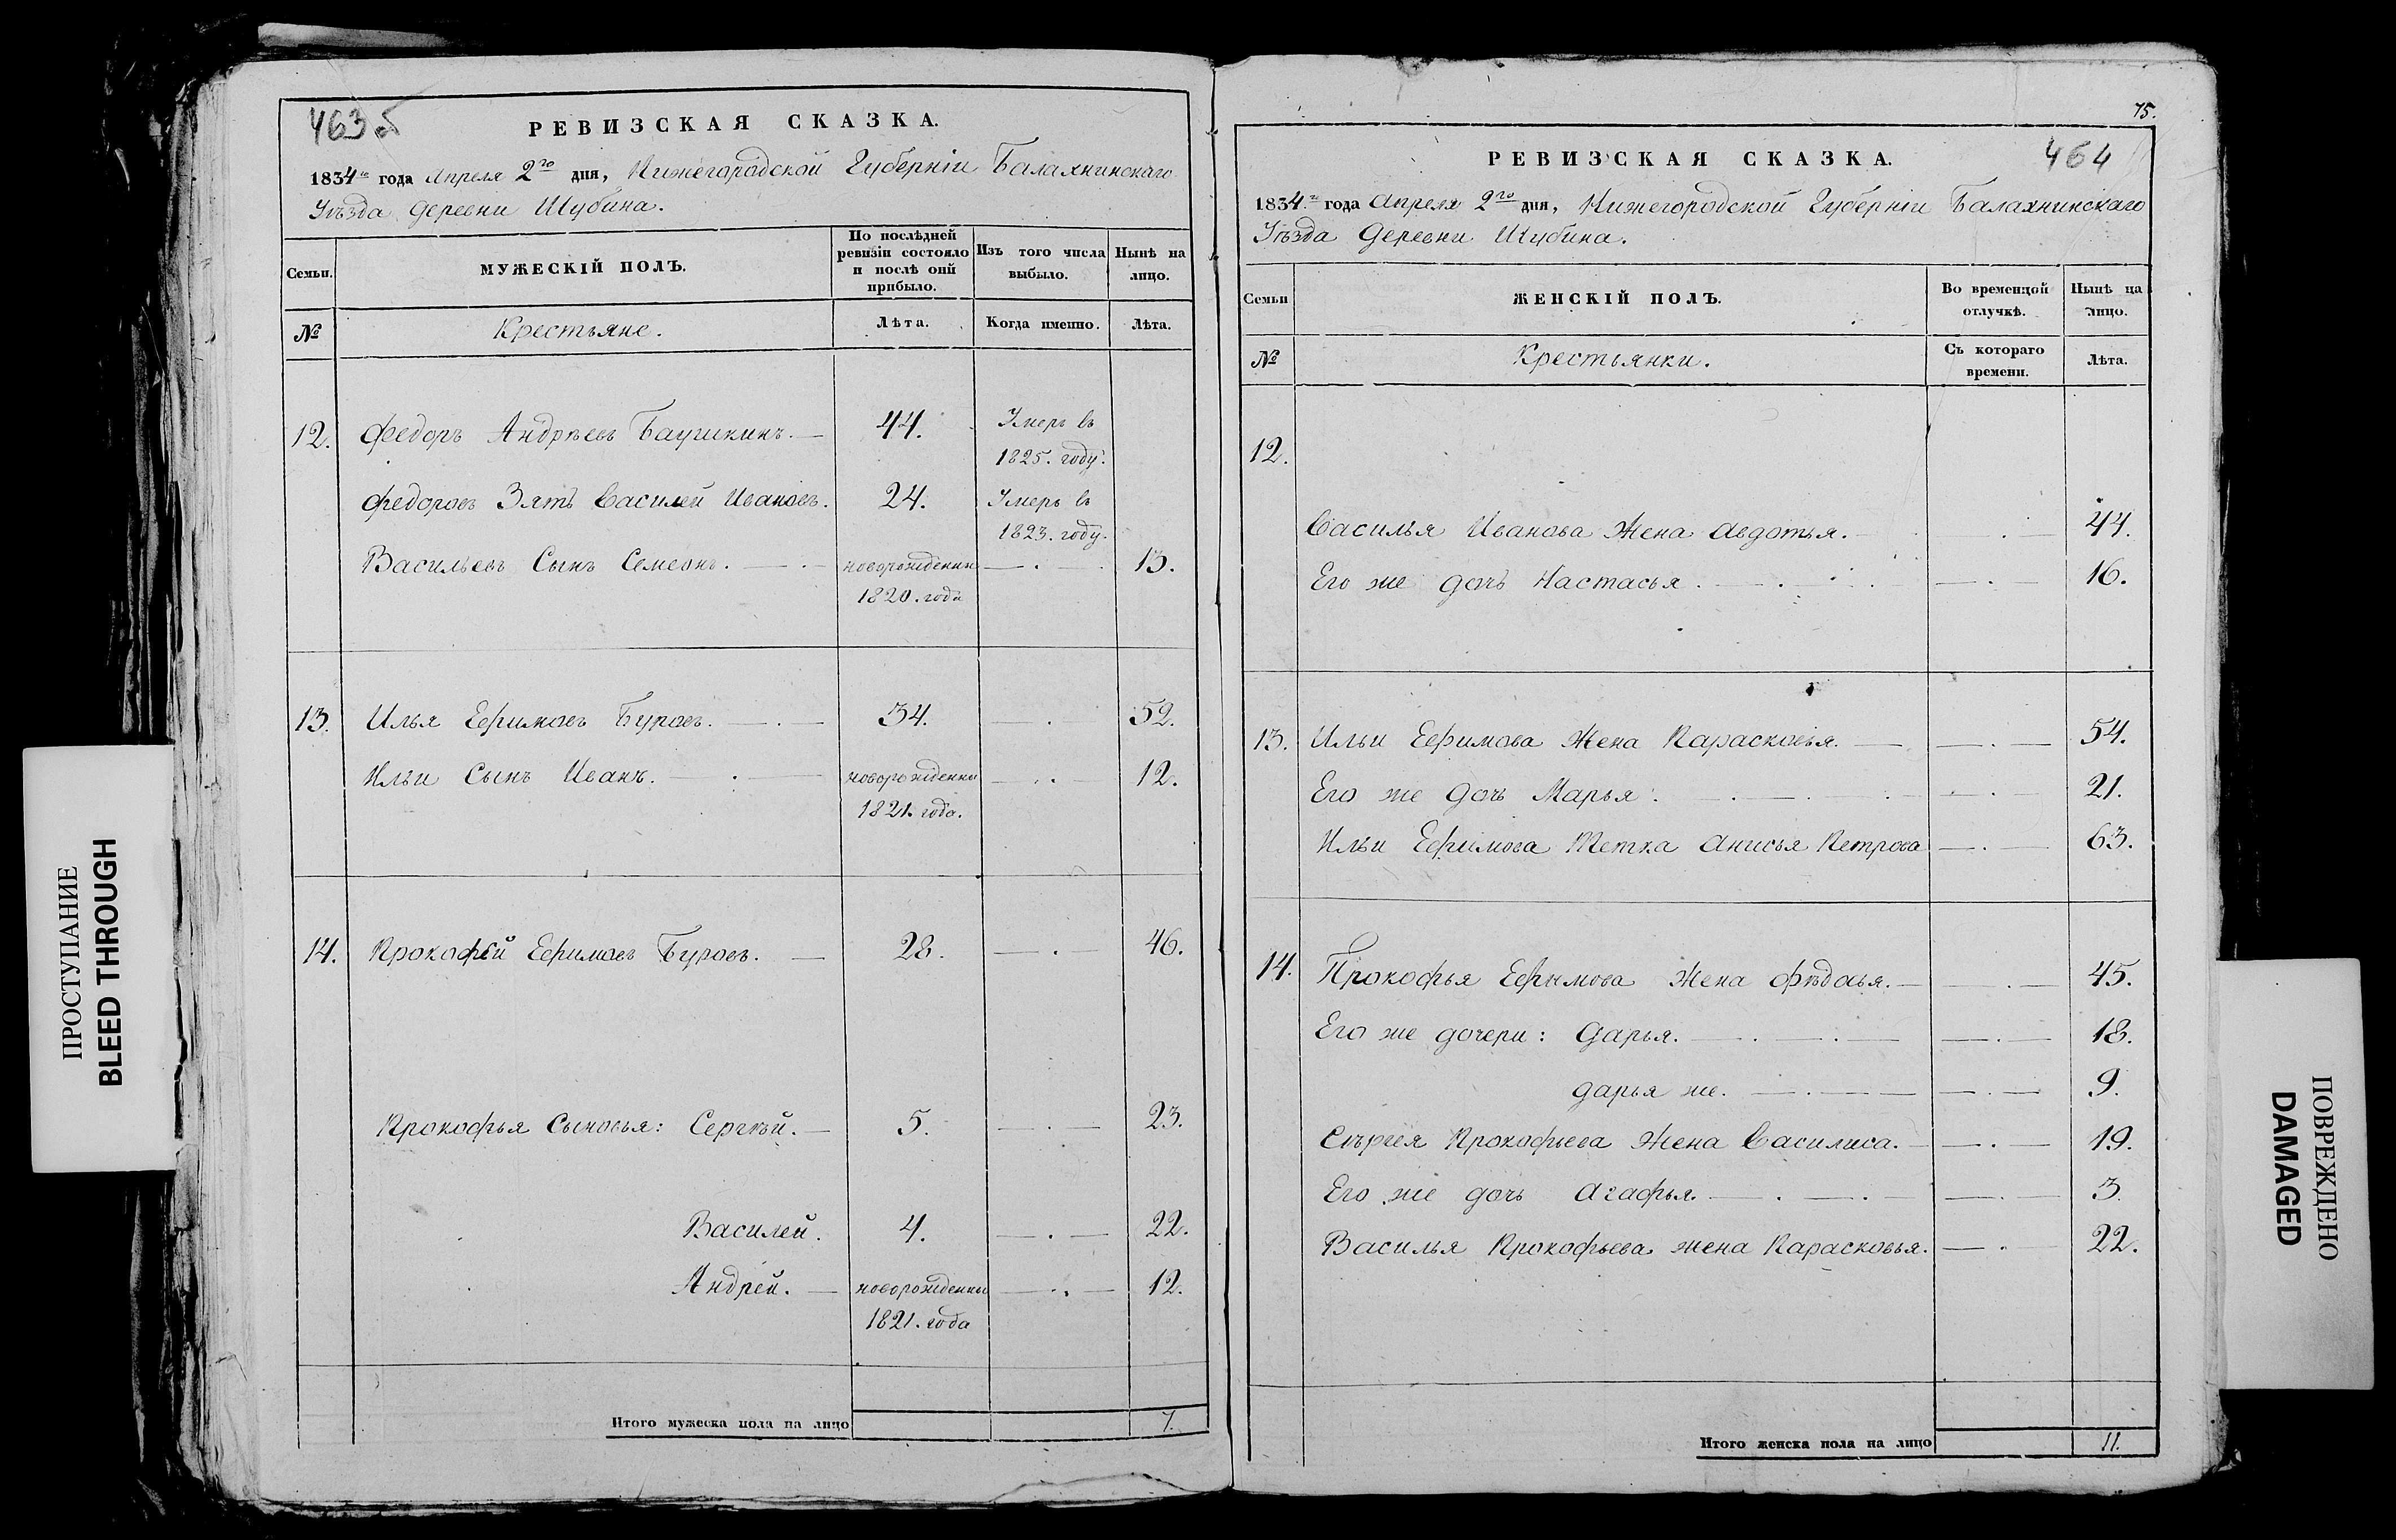 463 об
РЕВИЗСКАЯ СКАЗКА.
1834го года Апреля 2го дня, Нижегородской Губерніи Балахнинскаго
Уѣзда деревни Шубина.
Семьи.
МУЖЕСКІЙ ПОЛЪ.
По послѣдней ревизіи состояло и послѣ оий прибыло.
Изъ того числа выбыло.
Нынѣ на лицо.
№
Крестьяне.
Лѣта.
Когда именно.
Лѣта.
12. Федоръ Андрѣевъ Баушкинъ. 44. Умеръ въ
1825. году.
Федоровъ Зять Василей Ивановъ. 24. Умеръ въ
1823. году.
Васильевъ Сынъ Семеонъ. новорожденны 13.
1820. года
13. Илья Ефимовъ Буровъ. 34. 52.
Ильи Сынъ Иванъ. новорожденны 12.
1821. года.
14. Прокофей Ефимовъ Буровъ. 28. 46.
Прокофья Сыновья: Сергѣй. 5. 23.
Василей. 4. 22.
Андрей. новорожденны 12.
1821. года
Итого мужеска пола на лицо 7.
75.
464
РЕВИЗСКАЯ СКАЗКА.
1834го года Апреля 2го дня, Нижегородской Губерніи Балахнинскаго
Уѣзда Деревни Шубина.
Семьи
ЖЕНСКІЙ ПОЛЪ.
Во временной отлучкѣ.
Нынѣ на лицо.
№
Крестьянки.
Съ котораго времени.
Лѣта.
12.
Василья Иванова Жена Авдотья. 44.
Его же дочь Настасья. 16.
13. Ильи Ефимова Жена Парасковья. 54.
Его же дочь Марья. 21.
Ильи Ефимова Тетка Анисья Петрова 63.
14. Прокофья Ефимова Жена Фѣдосья. 45.
Его же дочери: Дарья. 18.
Дарья же. 9.
Сѣргея Прокофьева Жена Василиса. 19.
Его же дочь Агафья. 3.
Василья Прокофьева жена Парасковья. 22.
Итого женска пола на лицо 11.
ПРОСТУПАНИЕ
BLEED THROUGH
ПОВРЕЖДЕНО
DAMAGED